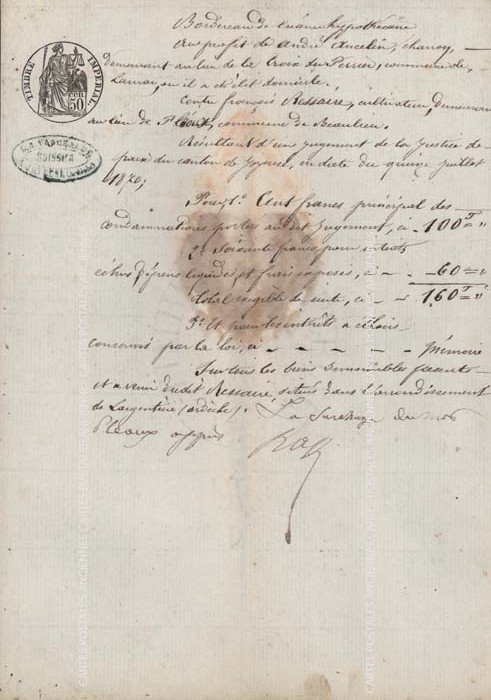 Bordereau de créance hypothécaire
Au profit de André Ancelin
demeurant au lieu de la Croix du Perrier, commune de
où il a élit domicile.
Contre françois Ressaire, cultivateur, demeurant
au lieu de commune de Beaulieu.
Résultant d'un jugement de la Justice de
paix du canton de Joyeuse, en date du quinze juillet
1870;
Pour 1°. Cent francs principal des
condamnations portées au dit Jugement, ci 100 F "
2° Soixante francs pour intérêts
échus dépens liquidés et frais exposés, ci — 60 = "
total exigible de suite, ci — 160 F "
3° Et pour les intérêts à échoir
conservés par la loi, ci — — — — — Mémoire
Sur tous les biens immeubles présents
et à venir du dit Ressaire, situés dans l'arrondissement
de Largentière (ardèche). La Surcharge du mot
approuvé
TIMBRE IMPÉRIAL
50